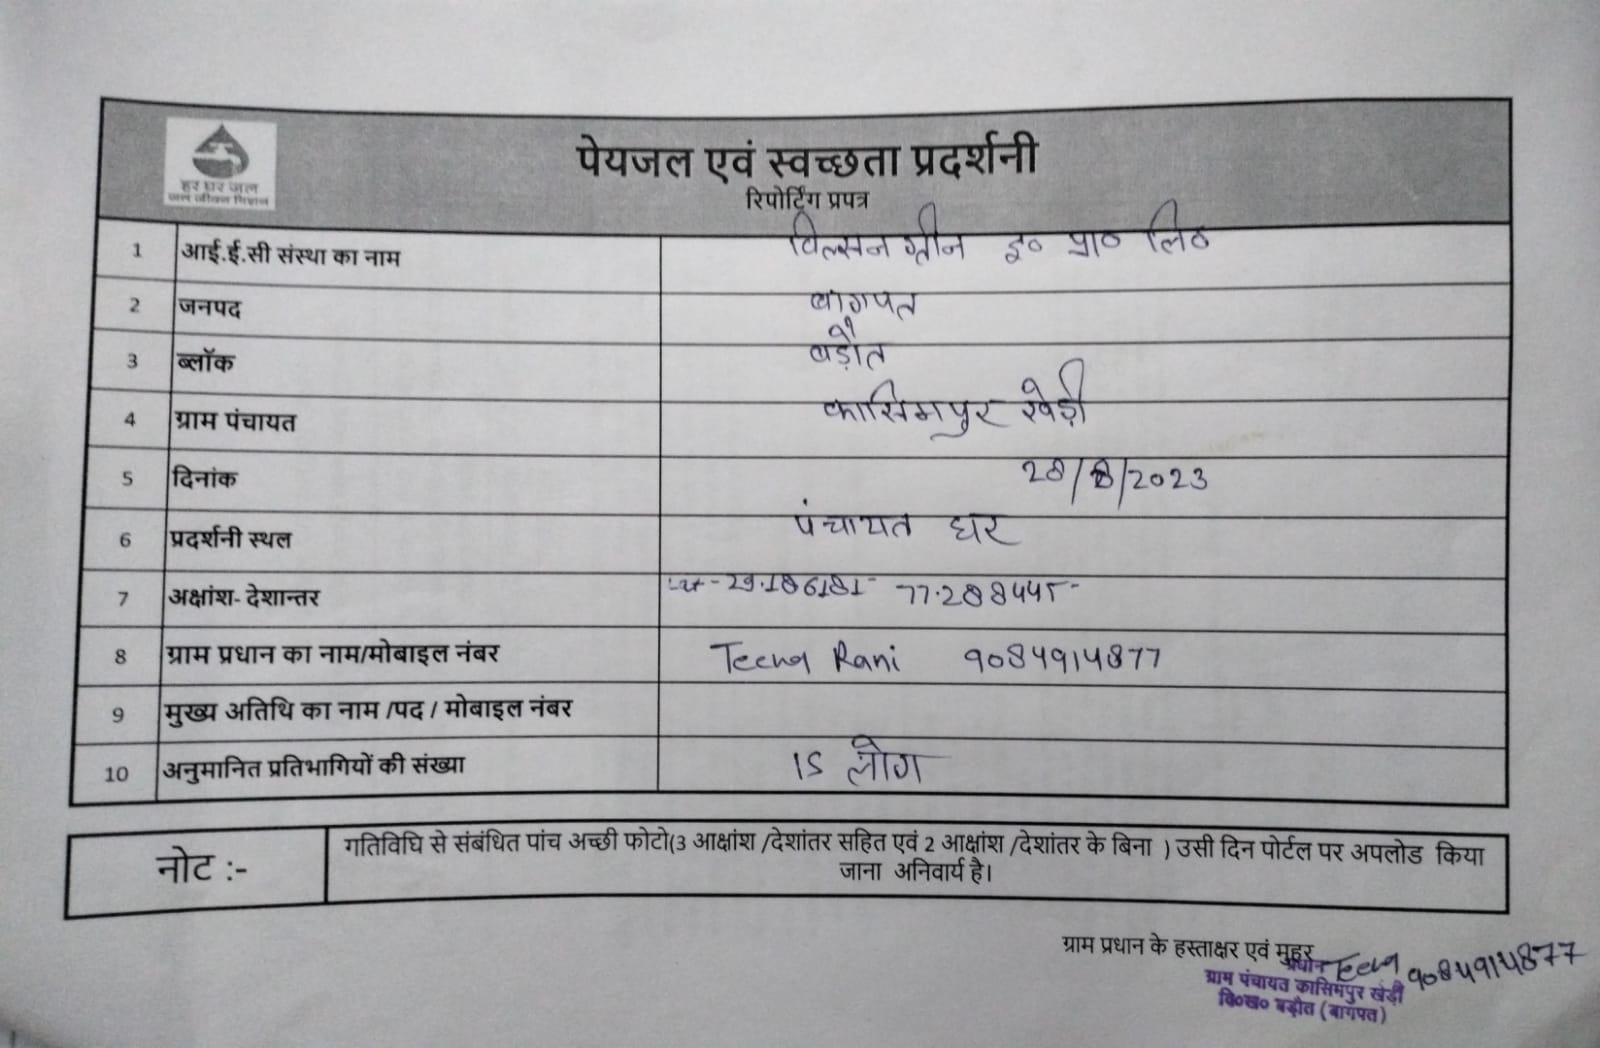 हर घर जल
जल जीवन मिशन
पेयजल एवं स्वच्छता प्रदर्शनी
रिपोर्टिंग प्रपत्र
1 आई.ई.सी संस्था का नाम विल्सन ग्रीन इ० प्रा० लि०
2 जनपद बागपत
3 ब्लॉक बड़ौत
4 ग्राम पंचायत कासिमपुर खेड़ी
5 दिनांक 28/8/2023
6 प्रदर्शनी स्थल पंचायत घर
7 अक्षांश- देशान्तर Lat-29.186181- 77.288445-
8 ग्राम प्रधान का नाम/मोबाइल नंबर Teena Rani 9084914877
9 मुख्य अतिथि का नाम /पद / मोबाइल नंबर
10 अनुमानित प्रतिभागियों की संख्या 15 लोग
नोट :- गतिविधि से संबंधित पांच अच्छी फोटो(3 आक्षांश /देशांतर सहित एवं 2 आक्षांश /देशांतर के बिना ) उसी दिन पोर्टल पर अपलोड किया
जाना अनिवार्य है।
ग्राम प्रधान के हस्ताक्षर एवं मुहर
प्रधान Teena 9084914877
ग्राम पंचायत कासिमपुर खेड़ी
वि०ख० बड़ौत (बागपत)